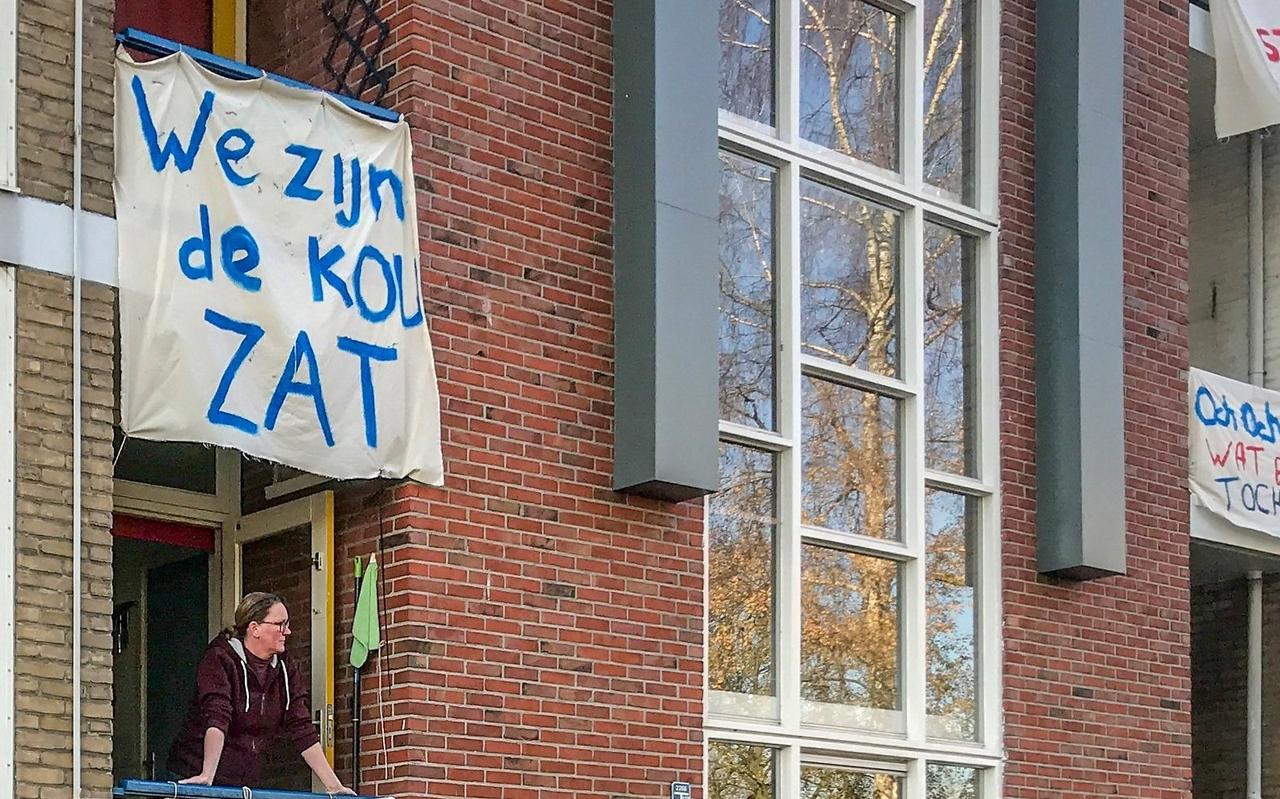 We zijn
de KOU
ZAT
Och Och
WAT
TOCH